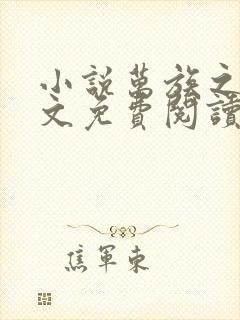 小說萬族之
文免費閱讀
焦軍東